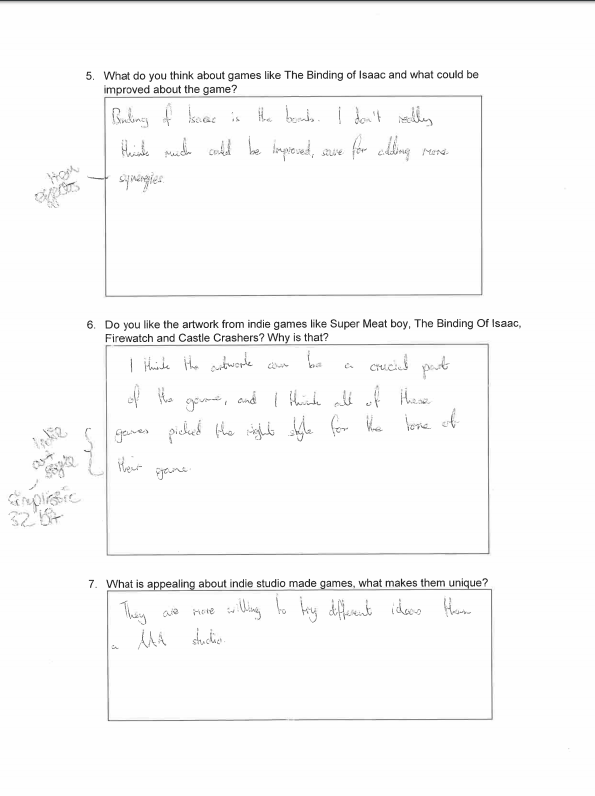 5. What do you think about games like The Binding of Isaac and what could be
improved about the game?
Binding of Isaac is the bomb. I don't really
think much could be improved, save for adding more
synergies.
Item
effects
6. Do you like the artwork from indie games like Super Meat boy, The Binding Of Isaac,
Firewatch and Castle Crashers? Why is that?
I think the artwork can be a crucial part
of the game, and I think all of these
games picked the right style for the tone of
their game.
indie
art
style
simplistic
32 bit
7. What is appealing about indie studio made games, what makes them unique?
They are more willing to try different ideas than
a AAA studio.